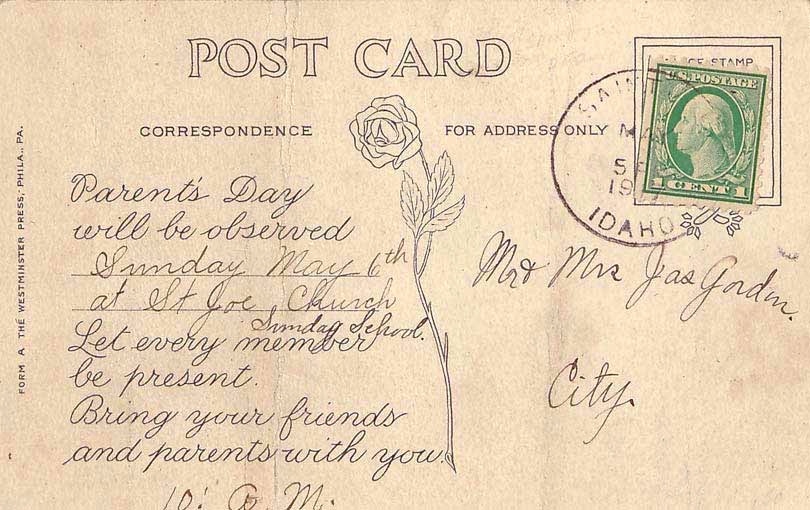 POST CARD
CORRESPONDENCE
FOR ADDRESS ONLY
Parent's Day
will be observed
Sunday May 6th
at St Joe Church
Sunday School.
Let every member
be present.
Bring your friends
and parents with you.
10: A. M.
Mr & Mrs Jas Gordon.
City.
STAMP
U.S. POSTAGE
1 CENT 1
IDAHO
FORM A THE WESTMINSTER PRESS, PHILA., PA.